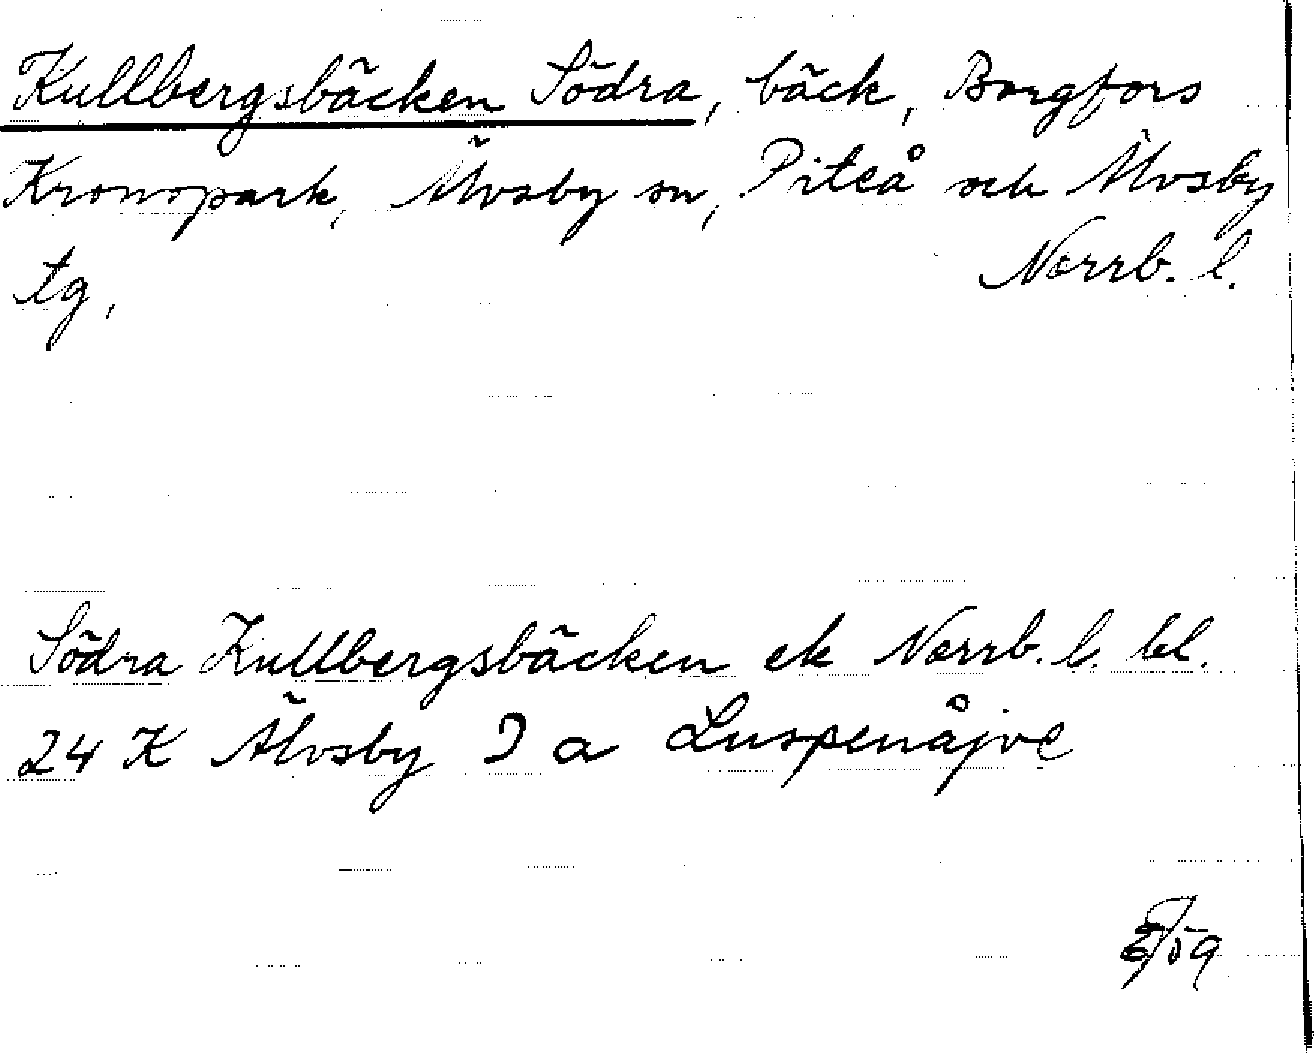 Kullbergsbäcken Södra, bäck, Borgfors
Kronopark, Älvsby sn, Piteå och Älvsby
tg,
Norrb. l.
Södra Kullbergsbäcken ek Norrb. l. bl.
24 K Älvsby I a Luspenåjve
/59